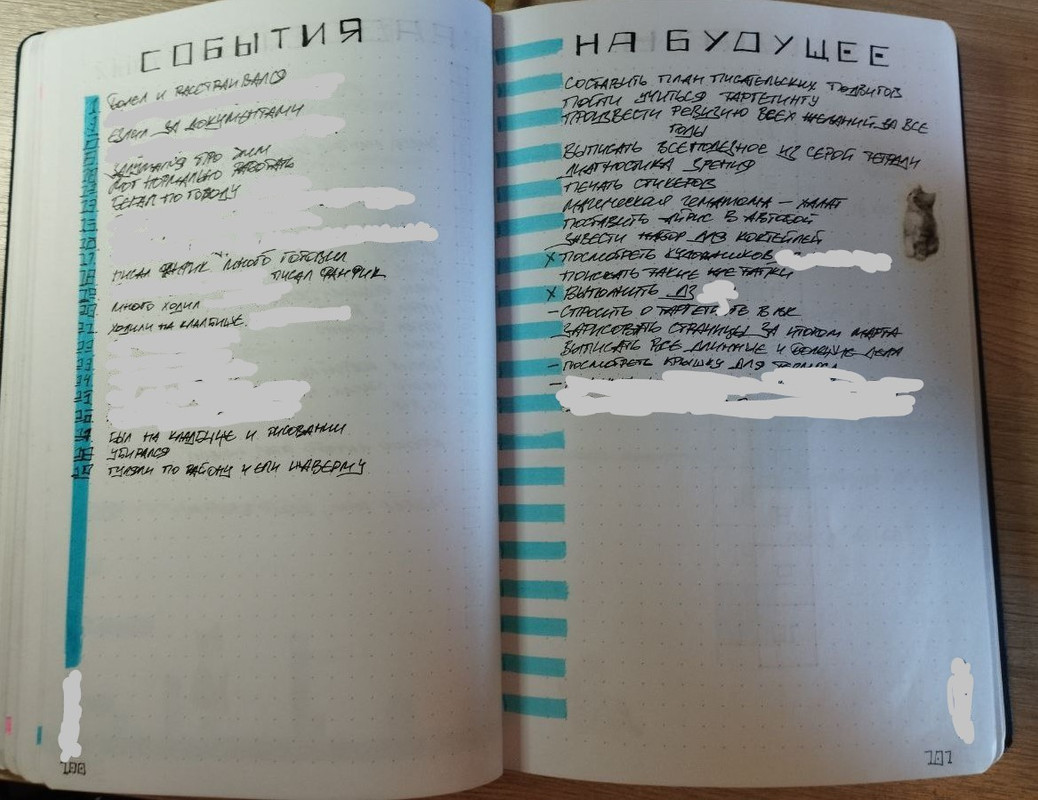 СОБЫТИЯ
БОЛЕЛ И РАССТРАИВАЛСЯ
ЕЗДИЛ ЗА ДОКУМЕНТАМИ
ПРО ЗИМ
МОГ НОРМАЛЬНО РАБОТАТЬ
БЕГАЛ ПО ГОРОДУ
ПИСАЛ ФАНФИК МНОГО ГОТОВИЛ
ПИСАЛ ФАНФИК
МНОГО ХОДИЛ
ХОДИЛИ НА КЛАДБИЩЕ.
БЫЛ НА КЛАДБИЩЕ И РИСОВАНИИ
УБИРАЛСЯ
ГУЛЯЛИ ПО РАЙОНУ И ЕЛИ ШАВЕРМУ
100
НА БУДУЩЕЕ
СОСТАВИТЬ ПЛАН ПИСАТЕЛЬСКИХ ПОДВИГОВ
ПОЙТИ УЧИТЬСЯ ТАРГЕТИНГУ
ПРОИЗВЕСТИ РЕВИЗИЮ ВСЕХ ЖЕЛАНИЙ ЗА ВСЕ
ГОДЫ
ВЫПИСАТЬ ВСЕ ПОЛЕЗНОЕ ИЗ СЕРОЙ ТЕТРАДИ
ДИАГНОСТИКА ЗРЕНИЯ
ПЕЧАТЬ СТИКЕРОВ
МАГИЧЕСКАЯ ГЕМАТОМА – ХАЛАТ
ПОСТАВИТЬ АЙРИС В АВТОБОЙ
ЗАВЕСТИ НАБОР ДЛЯ КОКТЕЙЛЕЙ
X ПОСМОТРЕТЬ КУПАЛЬНИКОВ
ПОИСКАТЬ ТАКИЕ ЖЕ ТАПКИ
X ВЫПОЛНИТЬ ДЗ
– СПРОСИТЬ О ТАРГЕТЕ В ВК
ЗАРИСОВАТЬ СТРАНИЦЫ ЗА МАРТА
ВЫПИСАТЬ ВСЕ ДЛИННЫЕ И БОЛЬШИЕ ДЕЛА
– ПОСМОТРЕТЬ КРЫШКУ ДЛЯ ТЕРМОСА
101